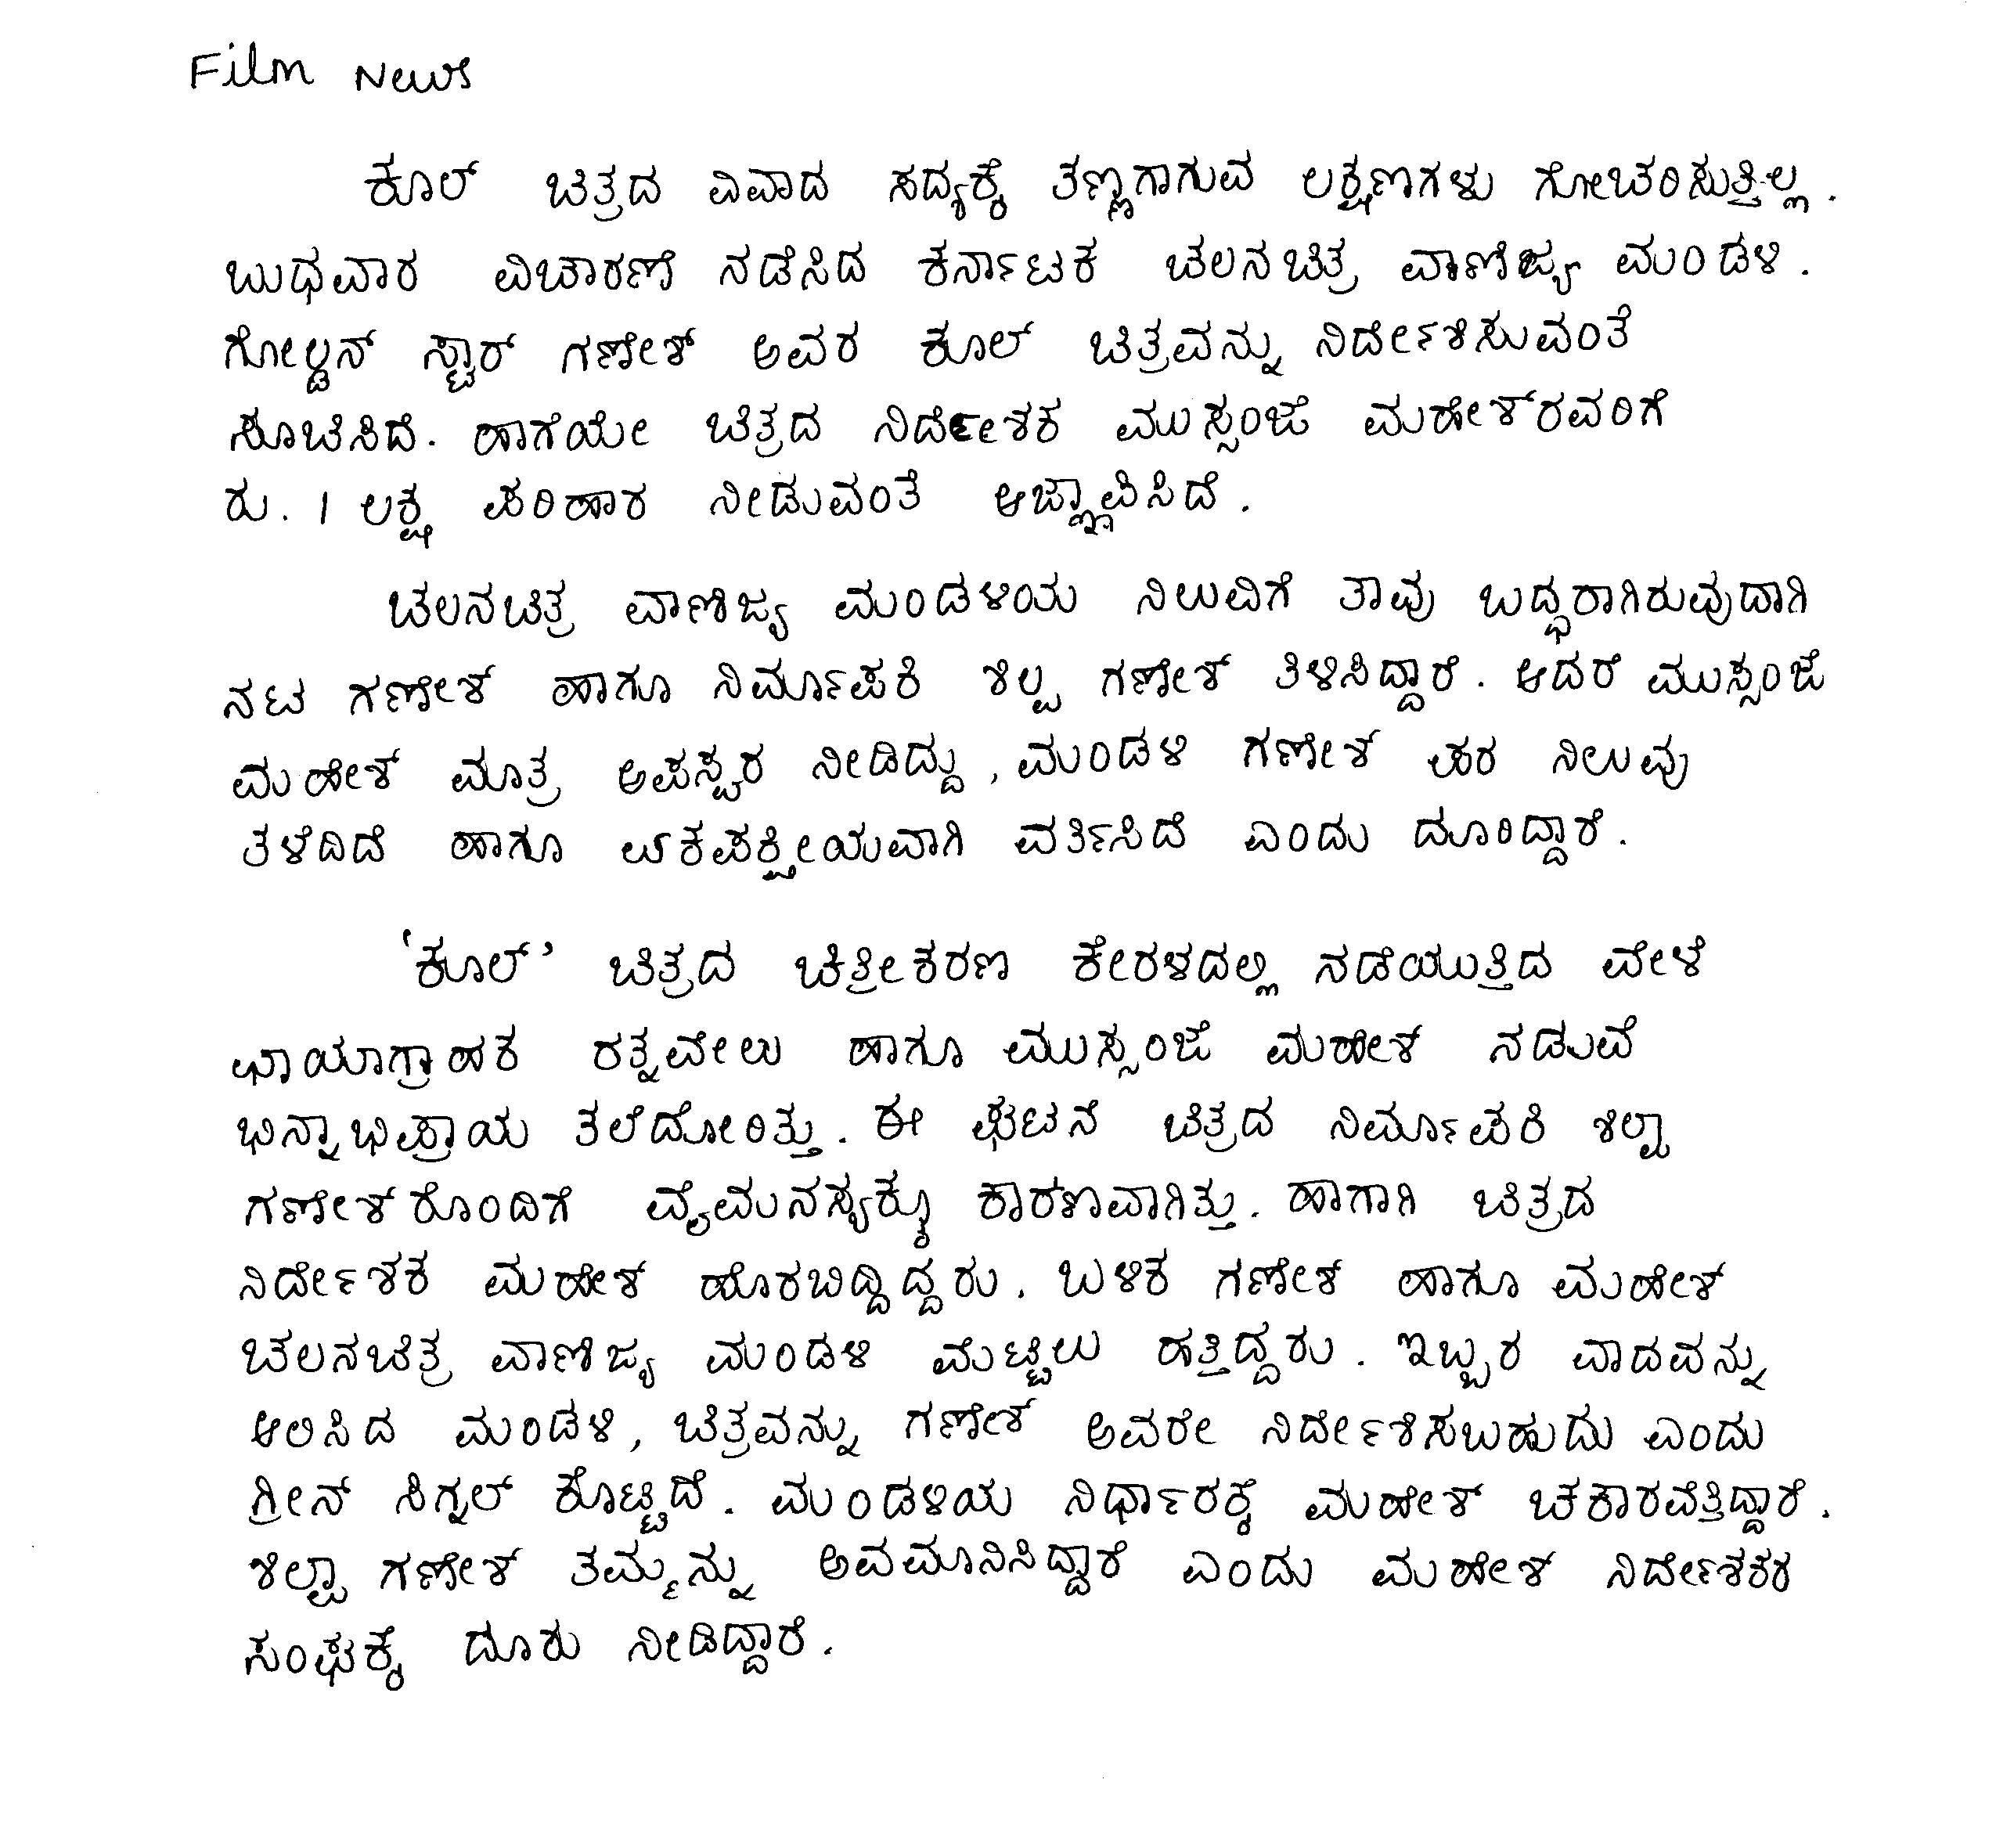 Film News
ಕೂಲ್ ಚಿತ್ರದ ವಿವಾದ ಸದ್ಯಕ್ಕೆ ತಣ್ಣಗಾಗುವ ಲಕ್ಷಣಗಳು ಗೋಚರಿಸುತ್ತಿಲ್ಲ.
ಬುಧವಾರ ವಿಚಾರಣೆ ನಡೆಸಿದ ಕರ್ನಾಟಕ ಚಲನಚಿತ್ರ ವಾಣಿಜ್ಯ ಮಂಡಳಿ.
ಗೋಲ್ಡನ್ ಸ್ಟಾರ್ ಗಣೇಶ್ ಅವರ ಕೂಲ್ ಚಿತ್ರವನ್ನು ನಿರ್ದೇಶಿಸುವಂತೆ
ಸೂಚಿಸಿದೆ. ಹಾಗೆಯೇ ಚಿತ್ರದ ನಿರ್ದೇಶಕ ಮುಸ್ಸಂಜೆ ಮಹೇಶ್‌ರವರಿಗೆ
ರು. 1 ಲಕ್ಷ ಪರಿಹಾರ ನೀಡುವಂತೆ ಆಜ್ಞಾಪಿಸಿದೆ.
ಚಲನಚಿತ್ರ ವಾಣಿಜ್ಯ ಮಂಡಳಿಯ ನಿಲುವಿಗೆ ತಾವು ಬದ್ಧರಾಗಿರುವುದಾಗಿ
ನಟ ಗಣೇಶ್ ಹಾಗೂ ನಿರ್ಮಾಪಕಿ ಶಿಲ್ಪ ಗಣೇಶ್ ತಿಳಿಸಿದ್ದಾರೆ. ಆದರೆ ಮುಸ್ಸಂಜೆ
ಮಹೇಶ್ ಮಾತ್ರ ಅಪಸ್ವರ ನೀಡಿದ್ದು, ಮಂಡಳಿ ಗಣೇಶ್ ಪರ ನಿಲುವು
ತಳೆದಿದೆ ಹಾಗೂ ಏಕಪಕ್ಷೀಯವಾಗಿ ವರ್ತಿಸಿದೆ ಎಂದು ದೂರಿದ್ದಾರೆ.
'ಕೂಲ್' ಚಿತ್ರದ ಚಿತ್ರೀಕರಣ ಕೇರಳದಲ್ಲಿ ನಡೆಯುತ್ತಿದ ವೇಳೆ
ಛಾಯಾಗ್ರಾಹಕ ರತ್ನವೇಲು ಹಾಗೂ ಮುಸ್ಸಂಜೆ ಮಹೇಶ್ ನಡುವೆ
ಭಿನ್ನಾಭಿಪ್ರಾಯ ತಲೆದೋರಿತ್ತು. ಈ ಘಟನೆ ಚಿತ್ರದ ನಿರ್ಮಾಪಕಿ ಶಿಲ್ಪಾ
ಗಣೇಶ್ ರೊಂದಿಗೆ ವೈಮನಸ್ಯಕ್ಕೂ ಕಾರಣವಾಗಿತ್ತು. ಹಾಗಾಗಿ ಚಿತ್ರದ
ನಿರ್ದೇಶಕ ಮಹೇಶ್ ಹೊರಬಿದ್ದಿದ್ದರು. ಬಳಿಕ ಗಣೇಶ್ ಹಾಗೂ ಮಹೇಶ್
ಚಲನಚಿತ್ರ ವಾಣಿಜ್ಯ ಮಂಡಳಿ ಮೆಟ್ಟಿಲು ಹತ್ತಿದ್ದರು. ಇಬ್ಬರ ವಾದವನ್ನು
ಆಲಿಸಿದ ಮಂಡಳಿ, ಚಿತ್ರವನ್ನು ಗಣೇಶ್ ಅವರೇ ನಿರ್ದೇಶಿಸಬಹುದು ಎಂದು
ಗ್ರೀನ್ ಸಿಗ್ನಲ್ ಕೊಟ್ಟಿದೆ. ಮಂಡಳಿಯ ನಿರ್ಧಾರಕ್ಕೆ ಮಹೇಶ್ ಚಕಾರವೆತ್ತಿದ್ದಾರೆ.
ಶಿಲ್ಪಾ ಗಣೇಶ್ ತಮ್ಮನ್ನು ಅವಮಾನಿಸಿದ್ದಾರೆ ಎಂದು ಮಹೇಶ್ ನಿರ್ದೇಶಕರ
ಸಂಘಕ್ಕೆ ದೂರು ನೀಡಿದ್ದಾರೆ.